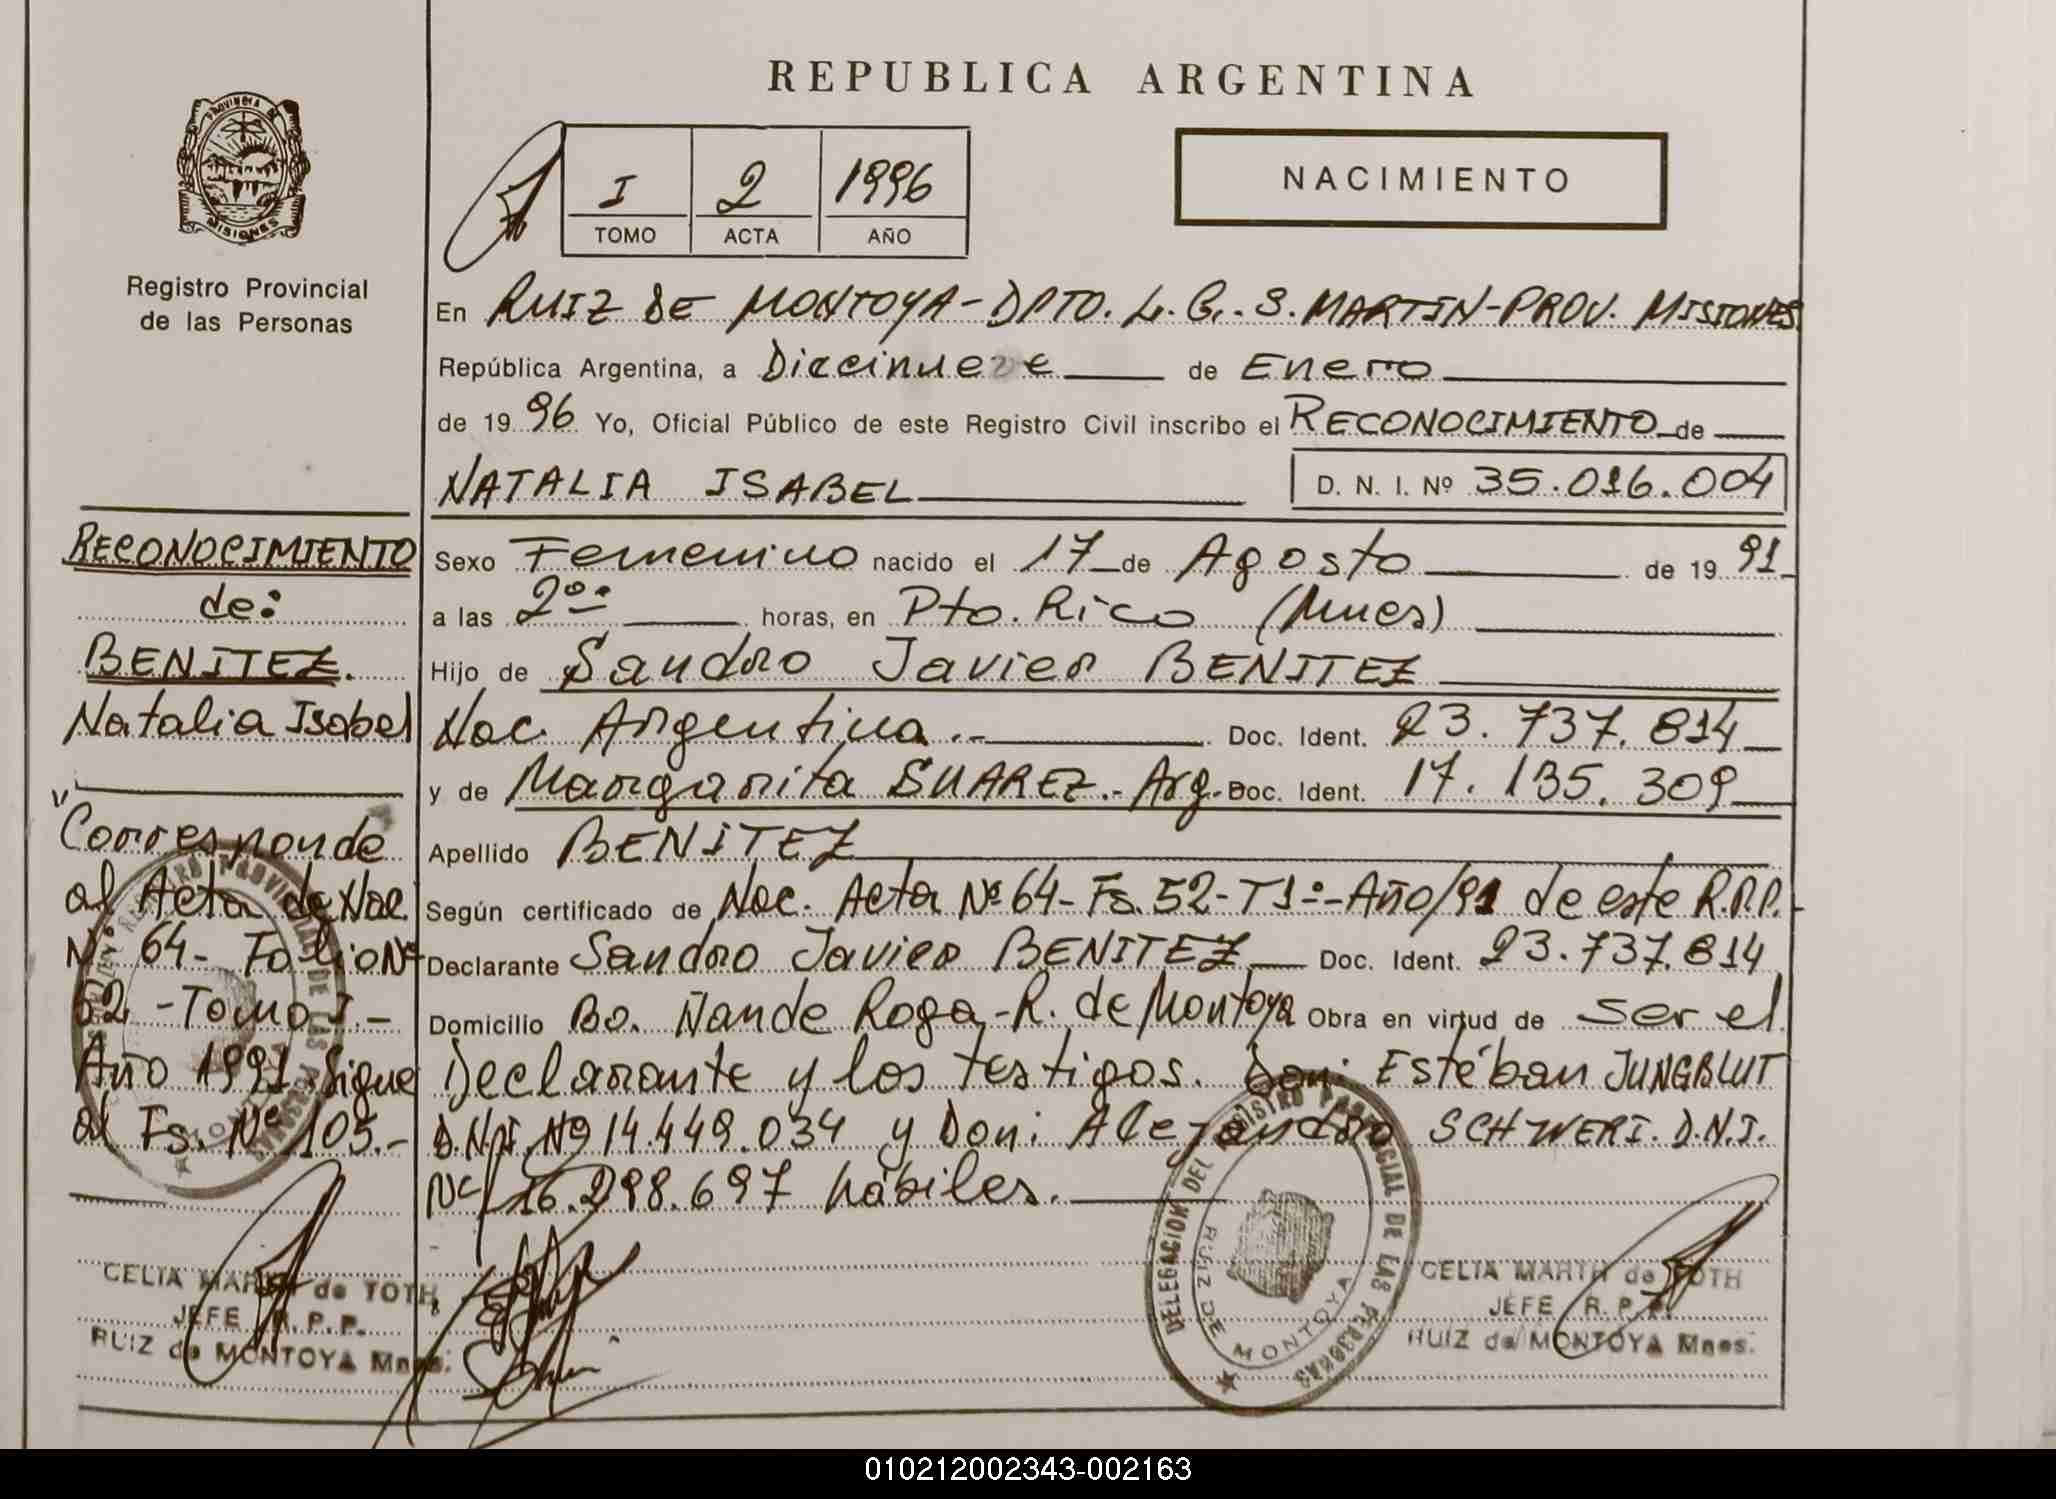 REPUBLICA ARGENTINA
PROVINCIA DE
MISIONES
Registro Provincial
de las Personas
I 2 1996
TOMO ACTA AÑO
NACIMIENTO
En RUIZ DE MONTOYA - DPTO. L. G. S. MARTIN - PROV. MISIONES
República Argentina, a Diecinueve de Enero
de 19 96 Yo, Oficial Público de este Registro Civil inscribo el RECONOCIMIENTO de
NATALIA ISABEL D. N. I. Nº 35.016.004
Sexo Femenino nacido el 17 de Agosto de 19 91
a las 2 00 horas, en Pto. Rico (Mnes)
Hijo de Sandro Javier BENITEZ
Nac. Argentina.- Doc. Ident. 23.737.814
y de Margarita SUAREZ.- Arg. Doc. Ident. 17.135.309
Apellido BENITEZ
Según certificado de Nac. Acta Nº 64 - Fs. 52 - T1º - Año/91 de este R.P.P.
Declarante Sandro Javier BENITEZ Doc. Ident. 23.737.814
Domicilio Bo. Ñande Roga - R. de Montoya Obra en virtud de ser el
Declarante y los testigos. Don: Estéban JUNGBLUT
D.N.I. Nº 14.449.034 y Don: Alejandro SCHWERI. D.N.I.
Nº 16.298.697 hábiles.
RECONOCIMIENTO
de:
BENITEZ.
Natalia Isabel
"Corresponde
al Acta de Nac.
Nº 64 - Folio Nº
52 - Tomo I.-
Año 1991. Sigue
al Fs. Nº 105.-
CELIA MARTA de TOTH
JEFE R.P.P.
RUIZ de MONTOYA Mnes.
DELEGACION DEL REGISTRO PROVINCIAL DE LAS PERSONAS
RUIZ DE MONTOYA
CELIA MARTA de TOTH
JEFE R.P.P.
RUIZ de MONTOYA Mnes.
010212002343-002163